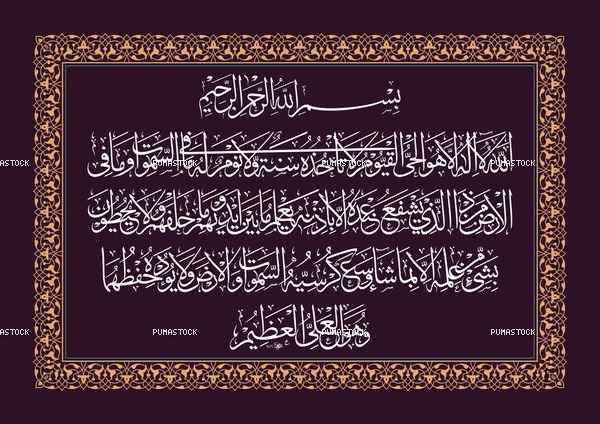 بِسْمِ اللهِ الرَّحْمٰنِ الرَّحِيْمِ
اللهُ لَا إِلٰهَ إِلَّا هُوَ الْحَيُّ الْقَيُّوْمُ لَا تَأْخُذُهُ سِنَةٌ وَلَا نَوْمٌ لَهُ مَا فِي السَّمٰوَاتِ وَمَا فِي
الْاَرْضِ مَنْ ذَا الَّذِيْ يَشْفَعُ عِنْدَهُ إِلَّا بِاِذْنِهِ يَعْلَمُ مَا بَيْنَ اَيْدِيْهِمْ وَمَا خَلْفَهُمْ وَلَا يُحِيْطُوْنَ
بِشَيْءٍ مِنْ عِلْمِهِ إِلَّا بِمَا شَاءَ وَسِعَ كُرْسِيُّهُ السَّمٰوَاتِ وَالْاَرْضَ وَلَا يَؤُدُهُ حِفْظُهُمَا
وَهُوَ الْعَلِيُّ الْعَظِيْمُ
MASTOCK PUMASTOCK PUMASTOCK
MASTOCK PUMASTOCK PUMASTOCK